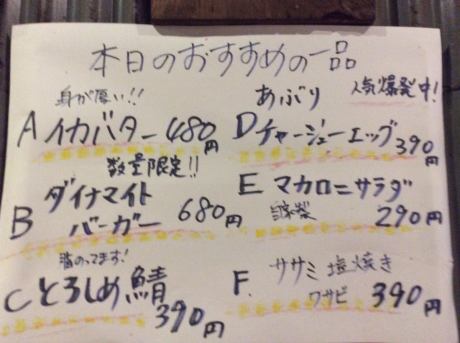 本日のおすすめの一品
身が厚い!!
A イカバター 480円
数量限定!!
B ダイナマイトバーガー 680円
脂のってます!
C とろしめ鯖 390円
人気爆発中!
あぶり
D チャーシューエッグ 390円
E マカロニサラダ
290円
F. ササミ 塩焼き
ワサビ 390円